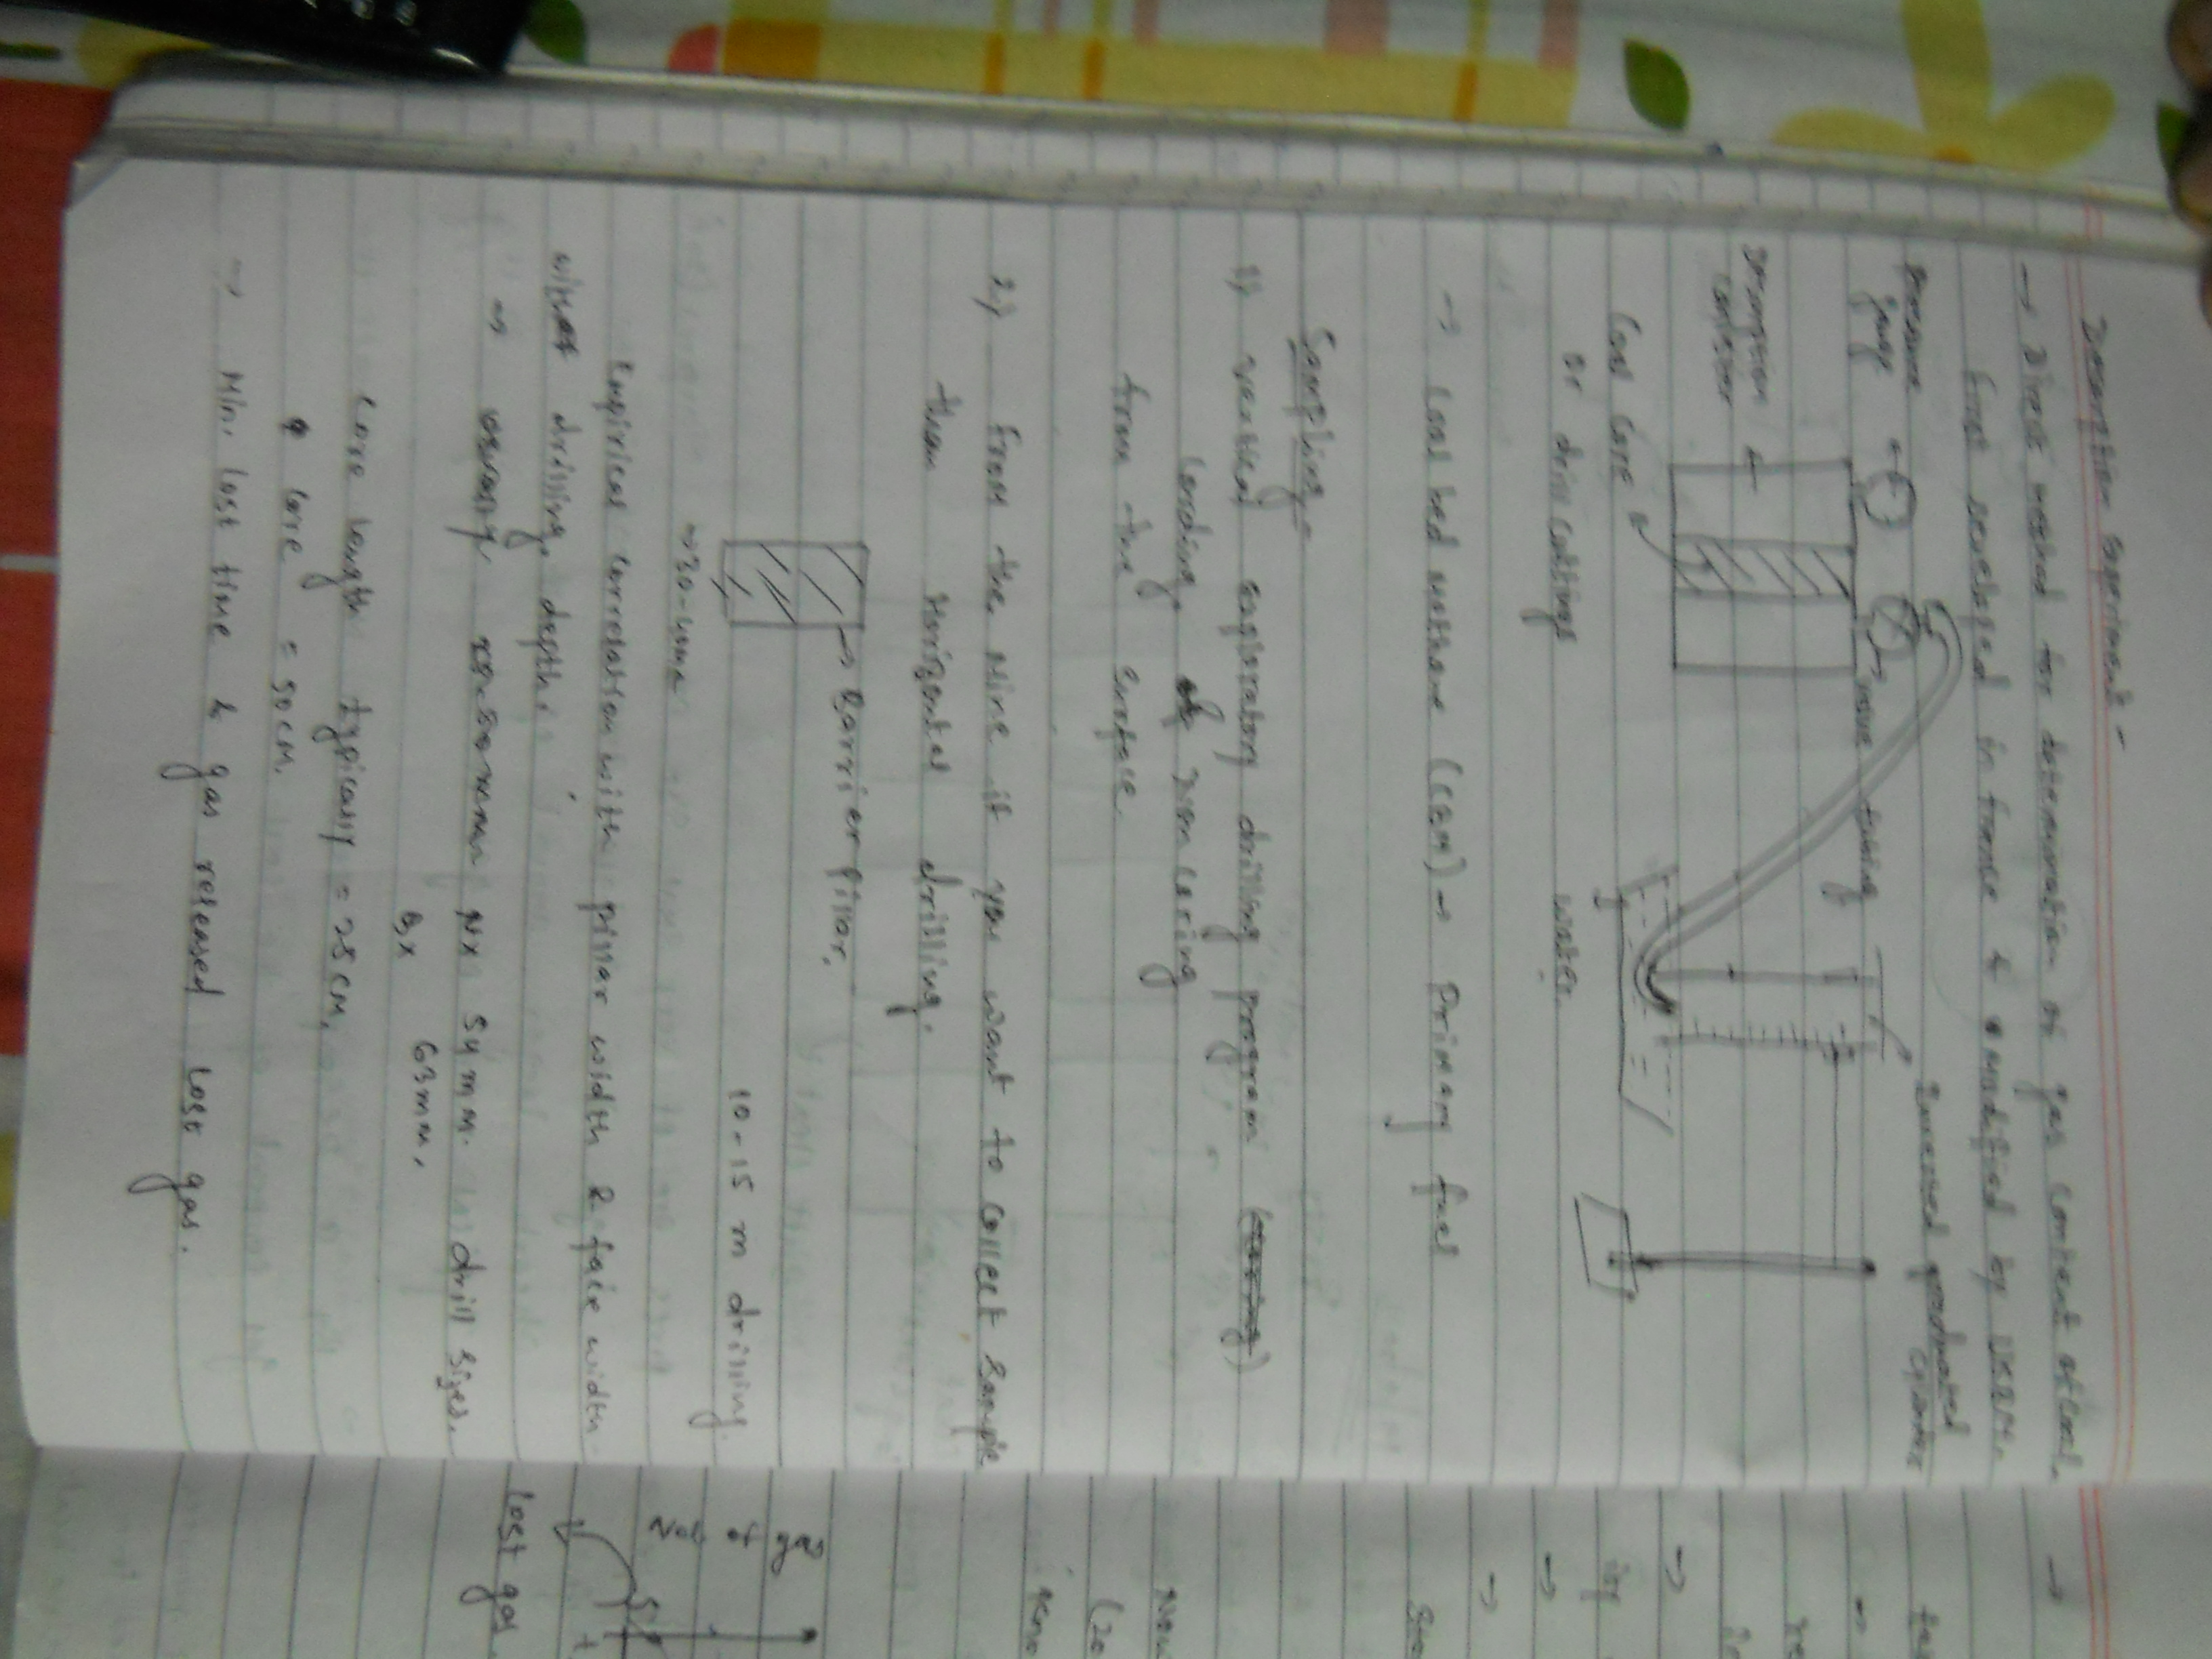 Desorption experiment -
→ Direct method for determination of gas content of coal.
first developed in france & modified by USBM.
Pressure
gauge
valve
tubing
Inversed graduated
cylinder
Desorption
canister
Coal core
or drill cuttings
water
→ Coal bed methane (CBM) → Primary fuel
Sampling -
1) vertical exploratory drilling program
from the surface.
2) from the mine if you want to collect sample
then Horizontal drilling.
→ Barrier pillar.
10-15 m drilling.
→ 30-40m
Empirical correlation with pillar width & face width
drilling, depth.
→ usually NX 54 mm. drill sizes.
BX 63mm.
Core length typically = 25 cm.
core = 50 cm.
→ Min. lost time & gas released lost gas.
Vol. of gas
lost gas